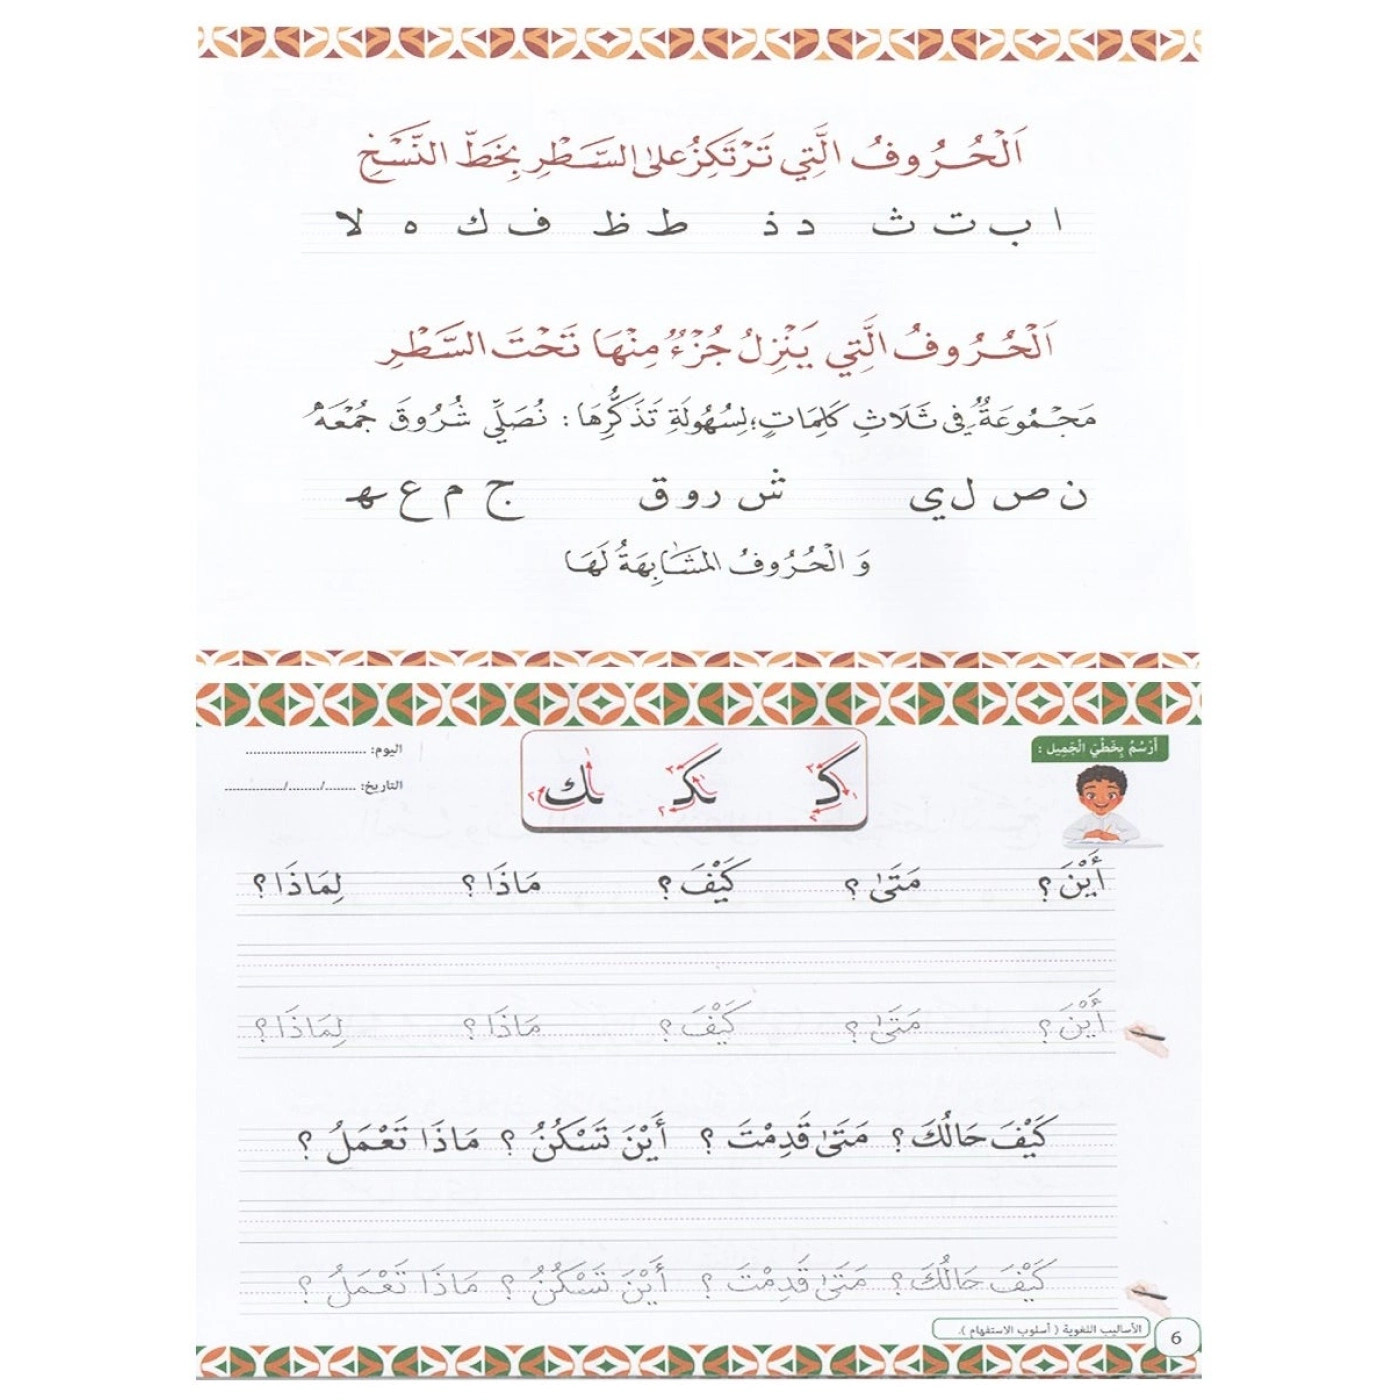 اَلْحُرُوفُ الَّتِي تَرْتَكِزُ عَلَى السَّطْرِ بِخَطِّ النَّسْخِ
ا ب ت ث د ذ ط ظ ف ك ه لا
اَلْحُرُوفُ الَّتِي يَنْزِلُ جُزْءٌ مِنْهَا تَحْتَ السَّطْرِ
مَجْمُوعَةٌ فِي ثَلَاثِ كَلِمَاتٍ؛ لِسُهُولَةِ تَذَكُّرِهَا : نُصَلِّي شُرُوقَ جُمْعَه
ن ص ل ي ش ر و ق ج م ع ه
وَ الْحُرُوفُ المُشَابِهَةُ لَهَا
أَرْسُمُ بِخَطِّيَ الْجَمِيل :
اليوم: ..............................
التاريخ: ......../......../...............
كـ ـكـ ـك
أَيْنَ ؟ مَتَى ؟ كَيْفَ ؟ مَاذَا ؟ لِمَاذَا ؟
أَيْنَ ؟ مَتَى ؟ كَيْفَ ؟ مَاذَا ؟ لِمَاذَا ؟
كَيْفَ حَالُكَ ؟ مَتَى قَدِمْتَ ؟ أَيْنَ تَسْكُنُ ؟ مَاذَا تَعْمَلُ ؟
كَيْفَ حَالُكَ ؟ مَتَى قَدِمْتَ ؟ أَيْنَ تَسْكُنُ ؟ مَاذَا تَعْمَلُ ؟
الأساليب اللغوية ( أسلوب الاستفهام ).
6